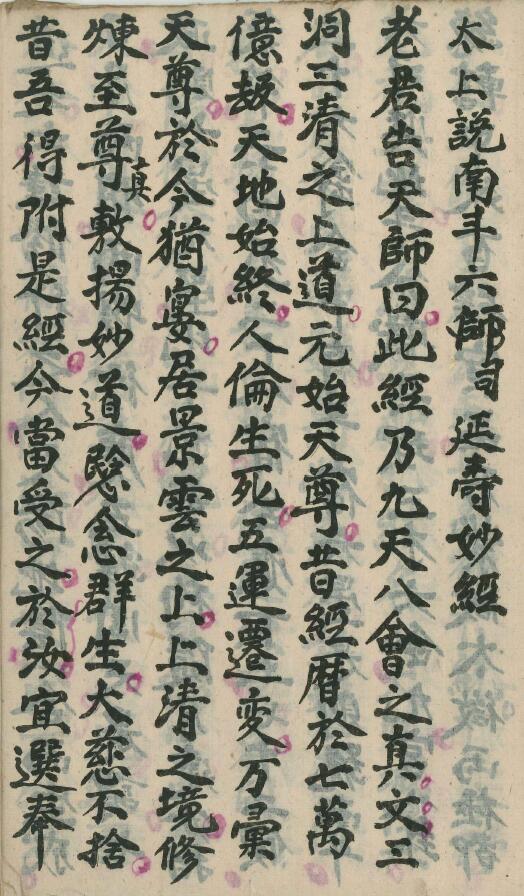 太上説南斗六師司延壽妙經
老君告天師曰此經乃九天八會之真文三
洞三清之上道元始天尊昔經曆於七萬
億劫天地始終人倫生死五運遷变万彙
天尊於今猶宴居景雲之上上清之境修
煉至尊真敷揚妙道愍念群生大慈不捨
昔吾得附是經今當受之於汝宜選奉